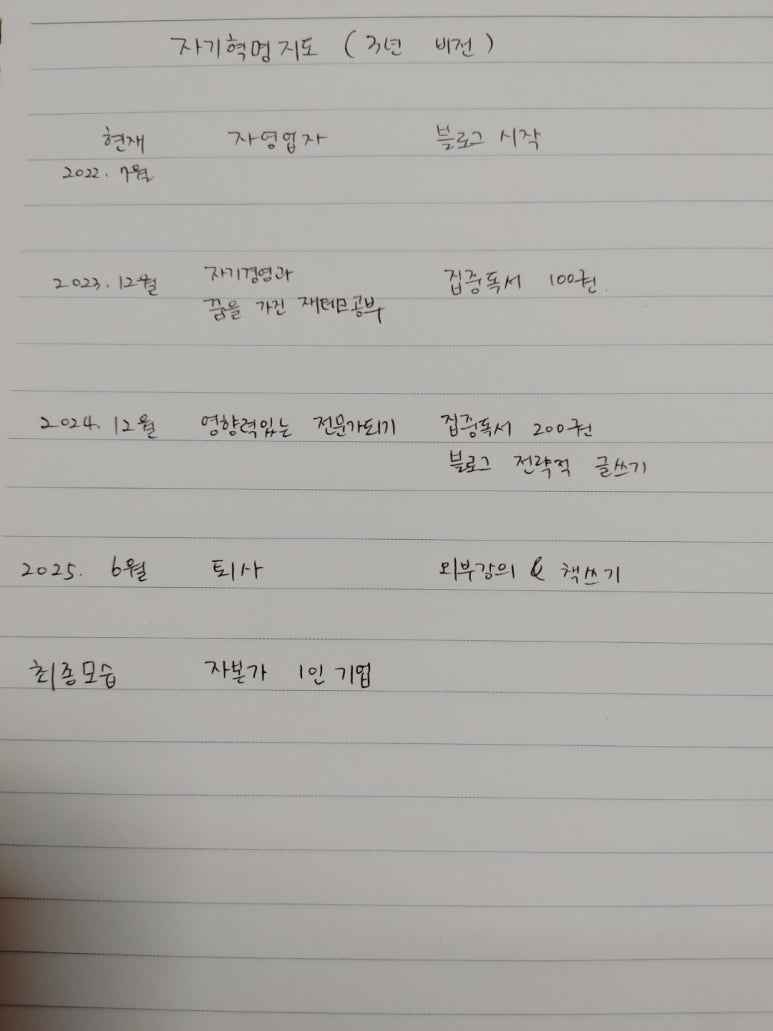 자기혁명지도 (3년 비전)
현재 자영업자 블로그 시작
2022. 7월
2023. 12월 자기경영과 집중독서 100권.
꿈을 가진 재테크공부
2024. 12월 영향력있는 전문가되기 집중독서 200권
블로그 전략적 글쓰기
2025. 6월 퇴사 외부강의 & 책쓰기
최종모습 자본가 1인 기업